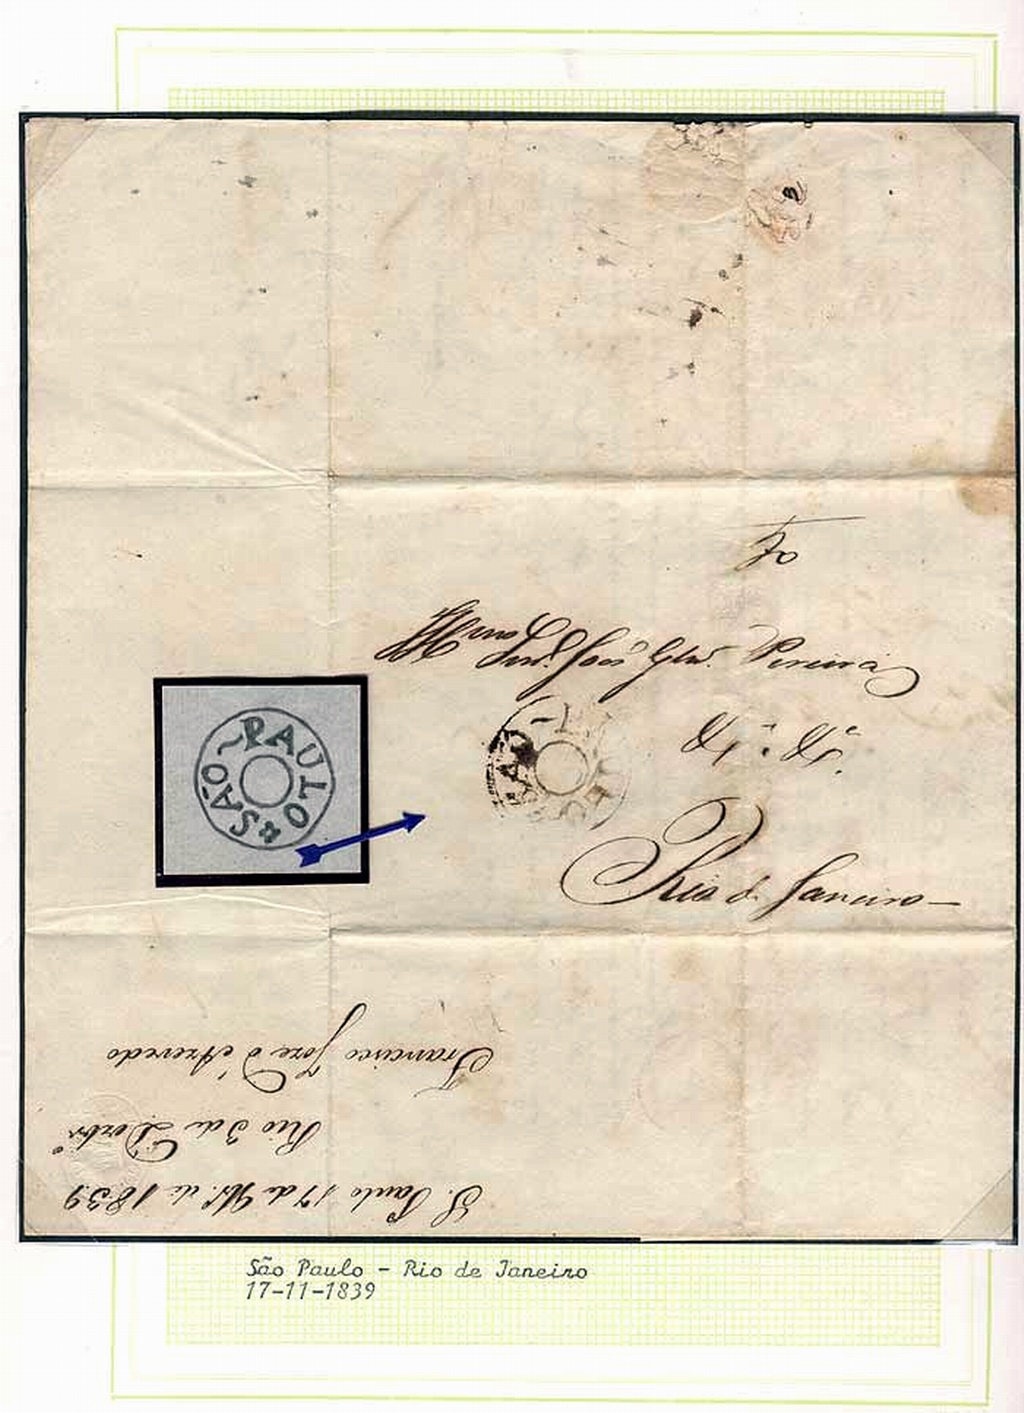 Illmo Snr. João Glz. Pereira
~PAULO
SÃO
SÃO~
Rio de Janeiro—
Francisco Joze d'Azevedo
Rio 3 de Dezbro
S. Paulo 17 de Nbr. de 1839
São Paulo - Rio de Janeiro
17-11-1839